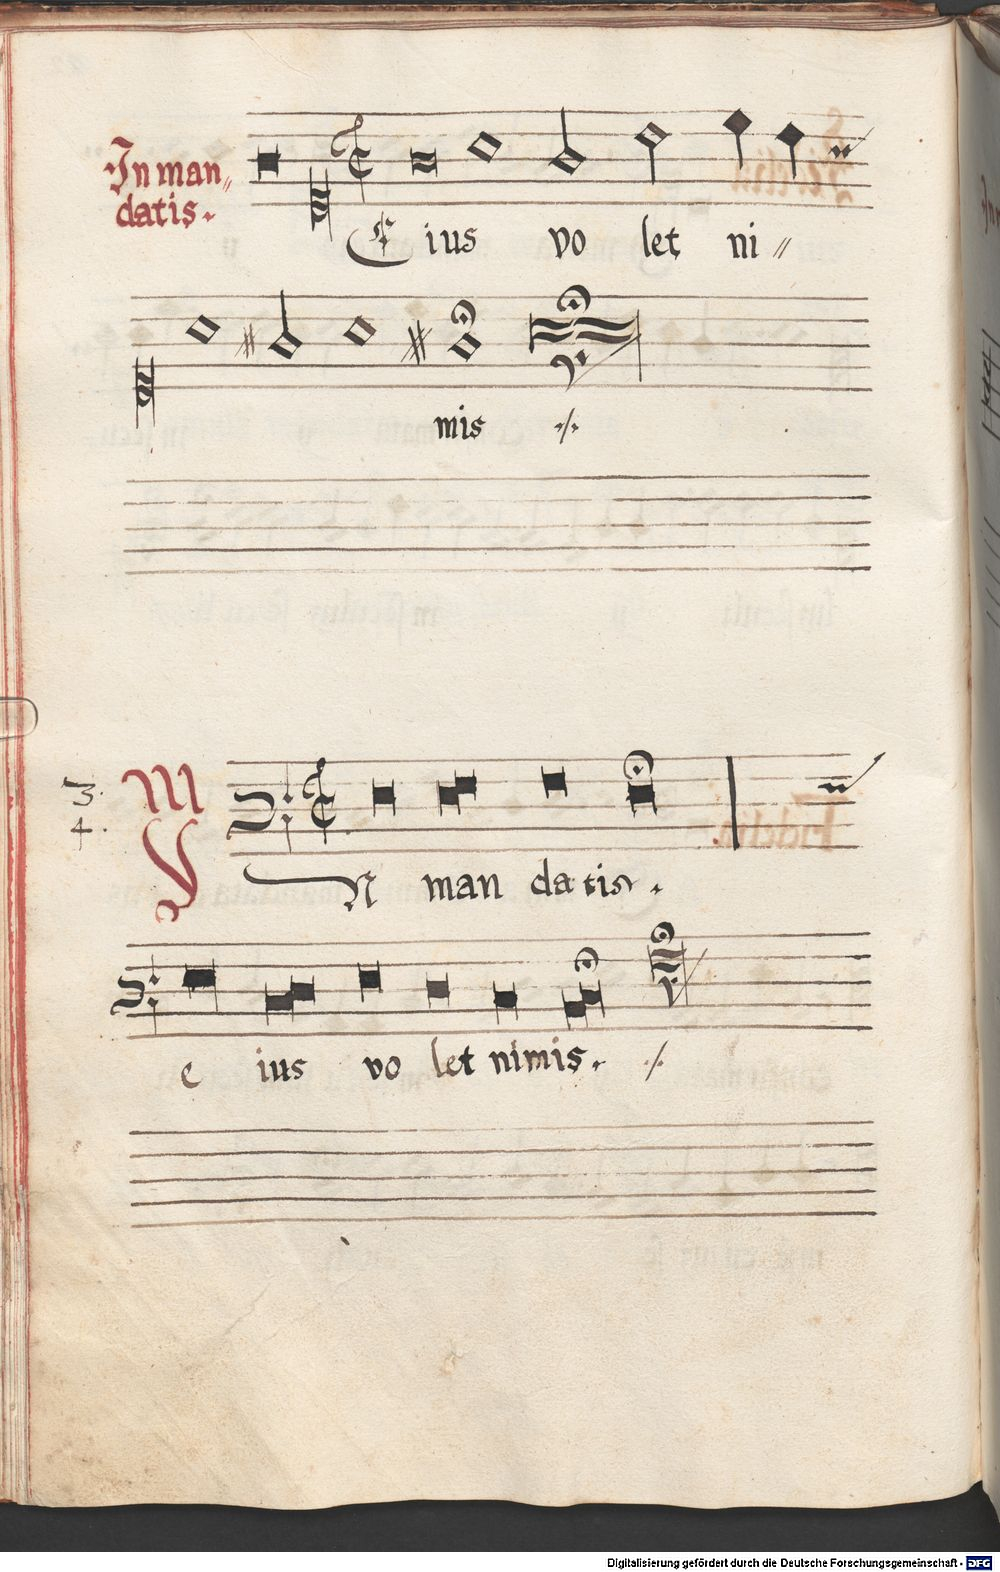 In man〃
datis.
Eius volet ni〃
mis
3.
4.
IN man datis.
e ius vo let nimis.
Digitalisierung gefördert durch die Deutsche Forschungsgemeinschaft - DFG